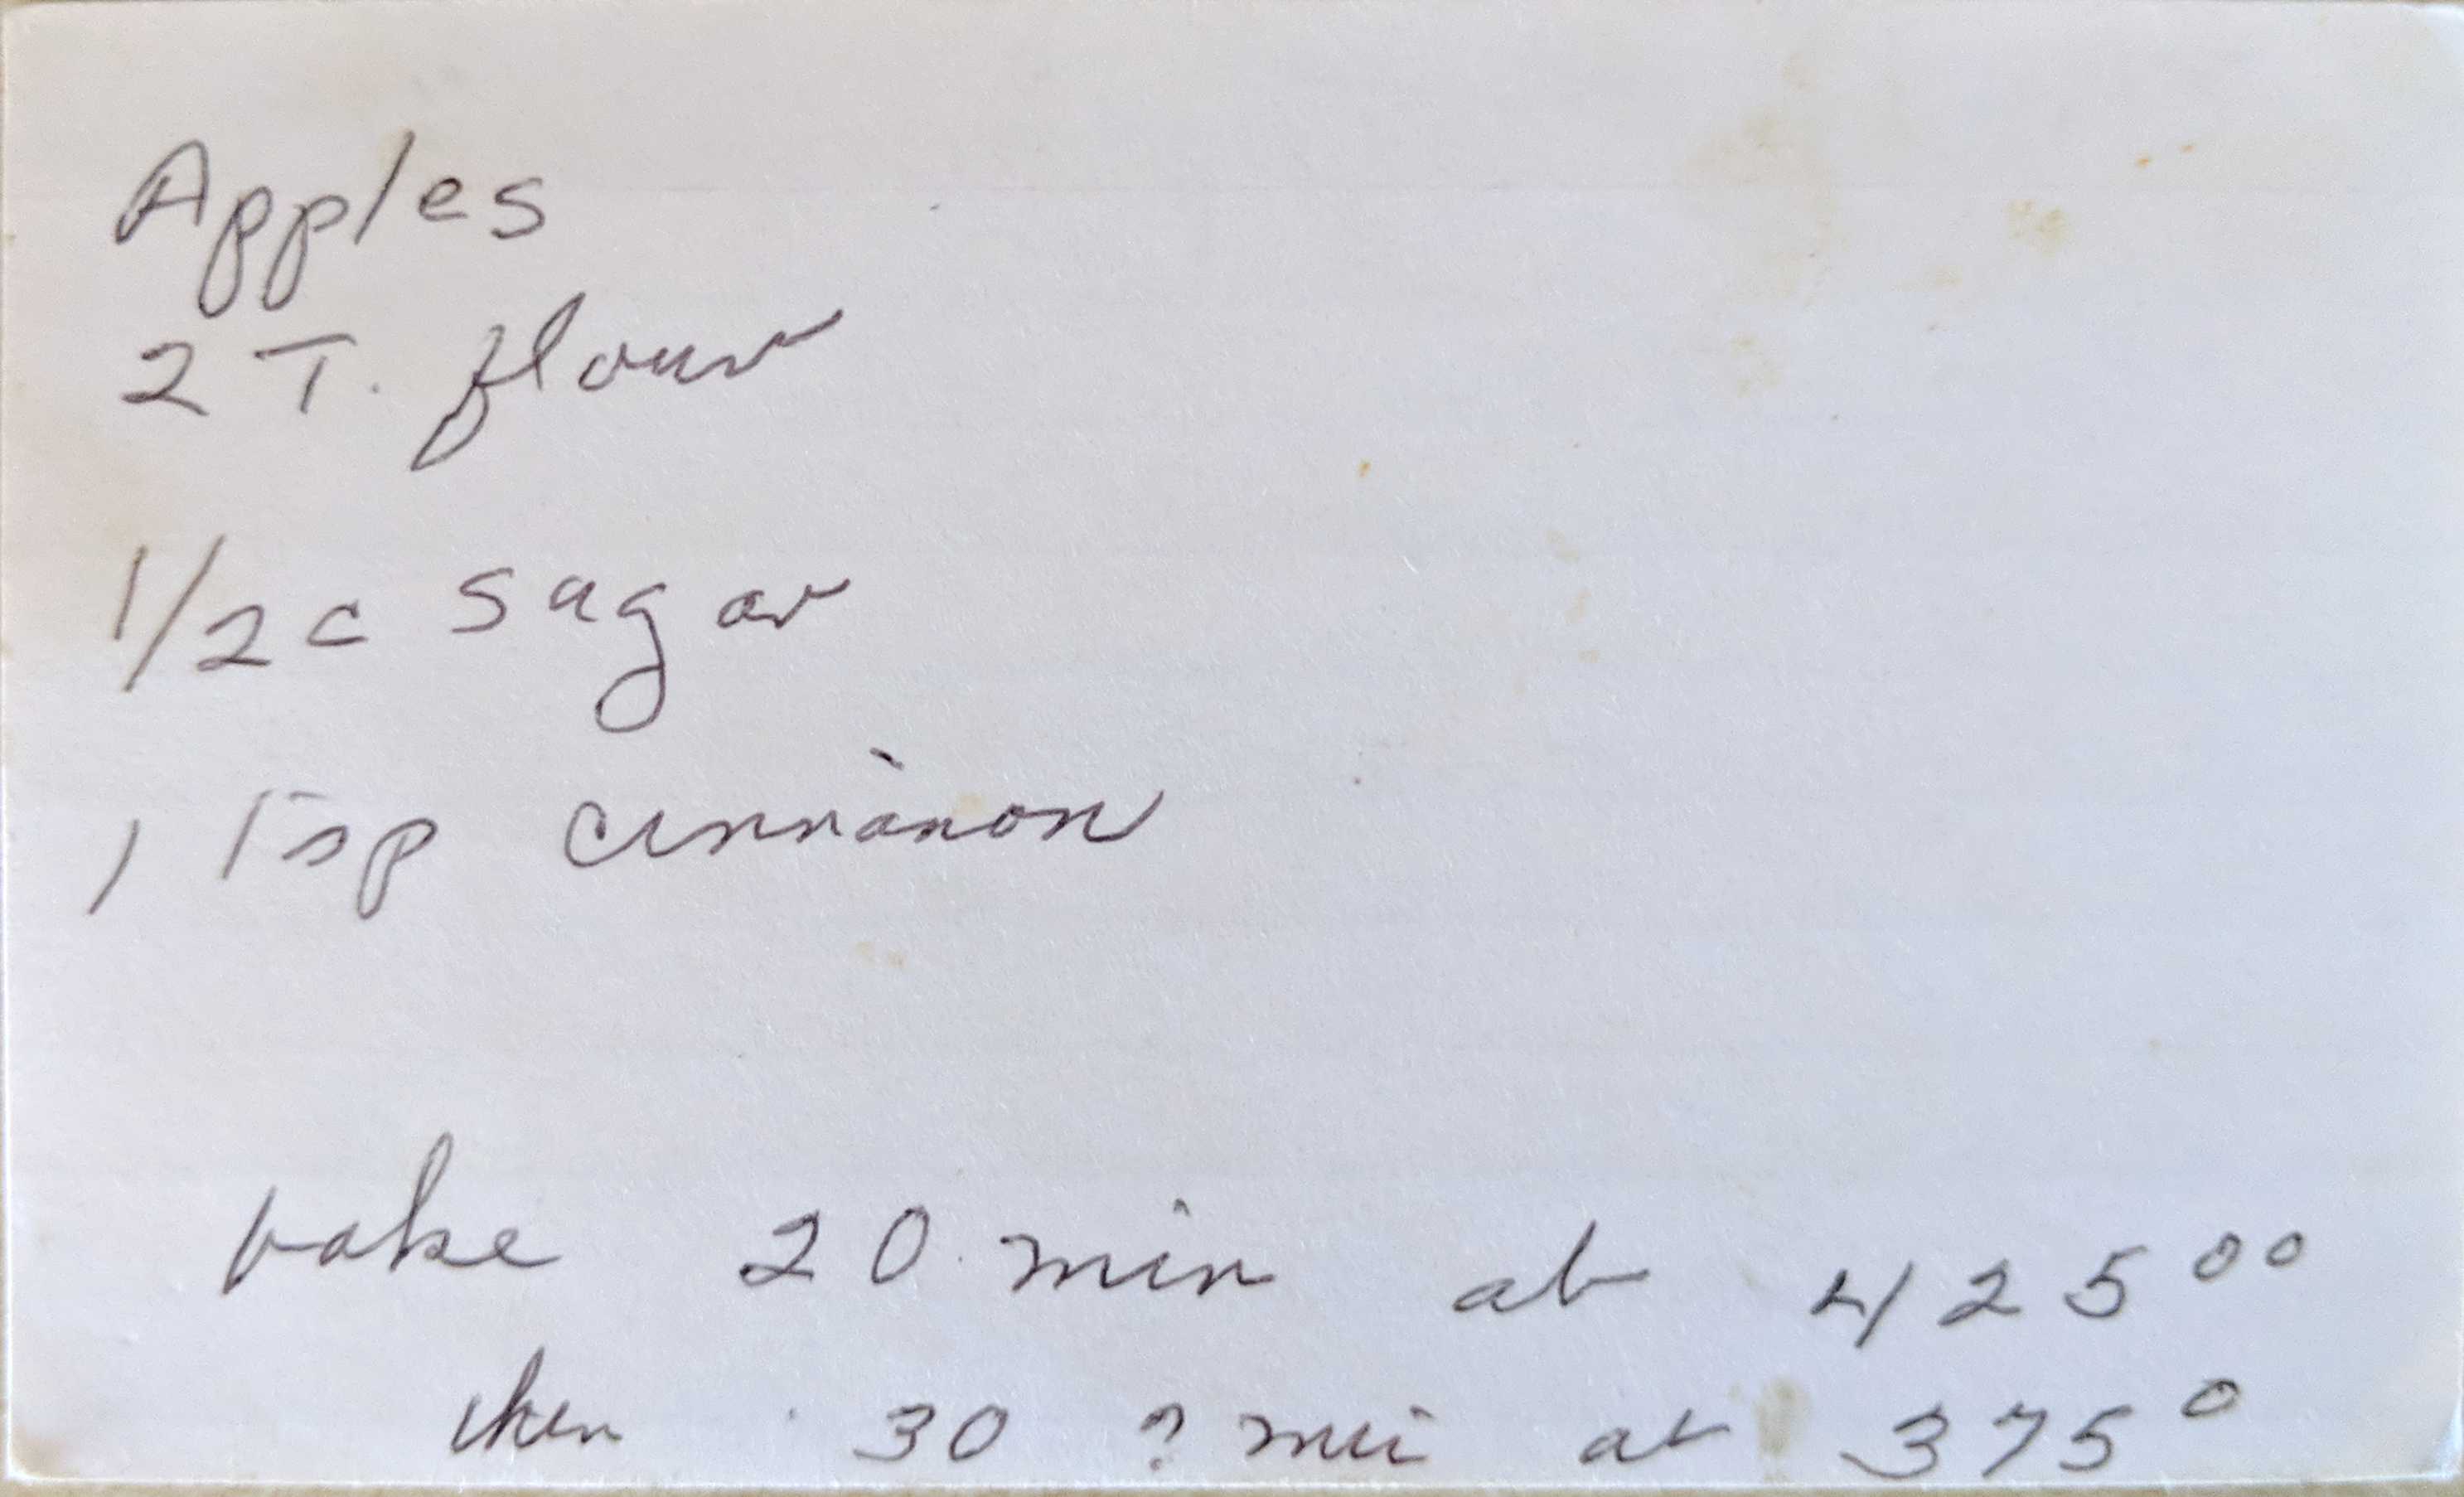 Apples
2 T. flour
1/2 c sugar
1 Tsp cinnamon
bake 20 min at 425°°
then 30 ? min at 375°